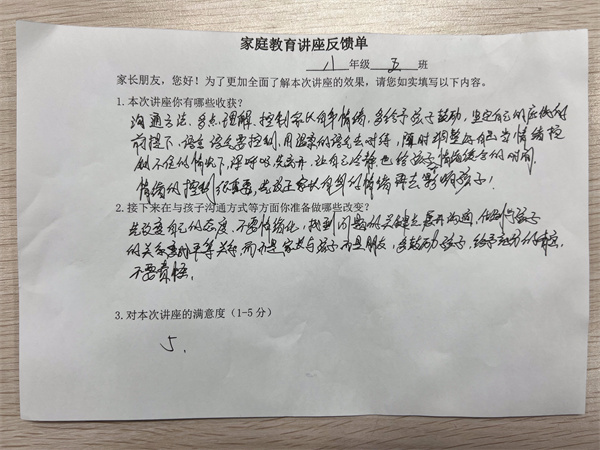 家庭教育讲座反馈单
八 年级 五 班
家长朋友，您好！为了更加全面了解本次讲座的效果，请您如实填写以下内容。
1.本次讲座你有哪些收获？
沟通方法、多点理解、控制家长自身情绪，多给予孩子鼓励，坚定自己的
前提下，语言语气要控制，用温柔的语气去对待，随时调整好自己当情绪控
制不住的情况下，深呼吸先离开，让自己冷静也给孩子情绪缓和的时间
情绪的控制很重要，家长自身的情绪再去影响孩子！
2.接下来在与孩子沟通方式等方面你准备做哪些改变？
先改变自己的态度，不要情绪化，找到问题的关键点展开沟通，与孩子
的关系平等关系，而不是家长与孩子而是朋友，多鼓励孩子，给予充分的肯定，
不要责怪。
3.对本次讲座的满意度（1-5 分）
5.